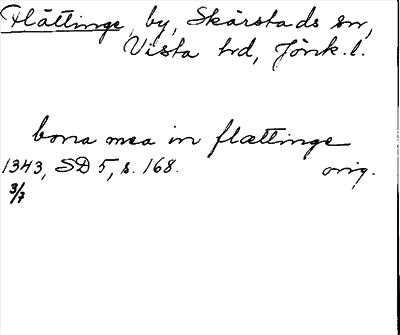 Flättinge, by, Skärstads sn,
Vista hd, Jönk. l.
bona mea in flættinge
1343, SD 5, s. 168. orig.
3/7